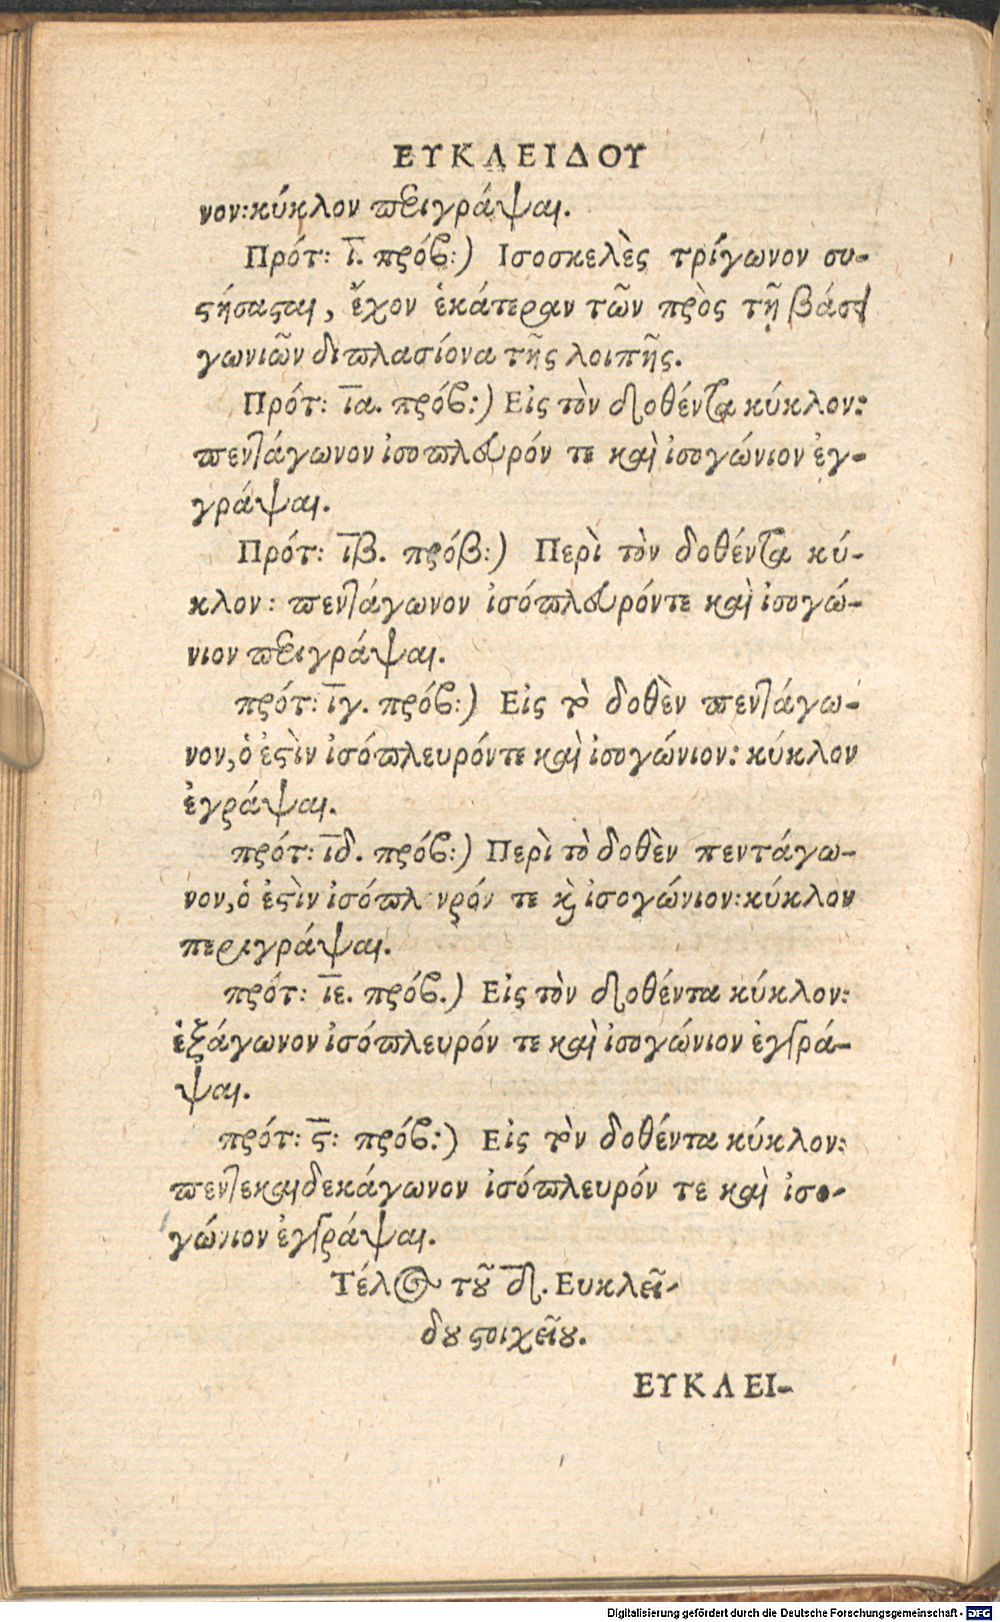 ΕΥΚΛΕΙΔΟΥ
νον: κύκλον περιγράψαι.
Πρότ: ι̅. πρόβ:) Ισοσκελὲς τρίγωνον συ-
ϛήσαϛαι, ἔχον ἑκάτεραν τῶν πρὸς τῇ βάσει
γωνιῶν διπλασίονα τῆς λοιπῆς.
Πρότ: ι̅α. πρόβ:) Εἰς τὸν δοθέντα κύκλον:
πεντάγωνον ἰσοπλευρόν τε καὶ ἰσογώνιον ἐγ-
γράψαι.
Πρότ: ι̅β. πρόβ:) Περὶ τὸν δοθέντα κύ-
κλον: πεντάγωνον ἰσόπλευρόντε καὶ ἰσογώ-
νιον περιγράψαι.
πρότ: ι̅γ. πρόβ:) Εἰς τὸ δοθὲν πεντάγω-
νον, ὁ ἐϛὶν ἰσόπλευρόντε καὶ ἰσογώνιον: κύκλον
ἐγράψαι.
πρότ: ι̅δ. πρόβ:) Περὶ τὸ δοθὲν πεντάγω-
νον, ὁ ἐϛὶν ἰσόπλ υρόν τε ϗ ἰσογώνιον: κύκλον
περιγράψαι.
πρότ: ι̅ε. πρόβ.) Εἰς τὸν δοθέντα κύκλον:
ἑξάγωνον ἰσόπλευρόν τε καὶ ἰσογώνιον ἐγγρά-
ψαι.
πρότ: ϛ̅: πρόβ:) Εἰς τὸν δοθέντα κύκλον:
πεντεκαιδεκάγωνον ἰσόπλευρόν τε καὶ ἰσο-
γώνιον ἐγγράψαι.
Τέλος τȣ͂ δ̅. Ευκλεῖ-
δȣ ϛοιχεῖȣ.
ΕΥΚΛΕΙ-
Digitalisierung gefördert durch die Deutsche Forschungsgemeinschaft - DFG